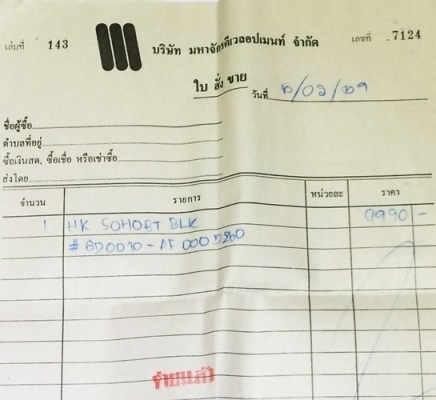 เล่มที่ 143
บริษัท มหาจักรดีเวลอปเมนท์ จำกัด
เลขที่ 7124
ใบ สั่ง ขาย
วันที่
ชื่อผู้ซื้อ
ตำบลที่อยู่
ซื้อเงินสด, ซื้อเชื่อ หรือเช่าซื้อ
ส่งโดย
จำนวน รายการ หน่วยละ ราคา
1 HK SOHOBT BLK 9990 -
จ่ายแล้ว